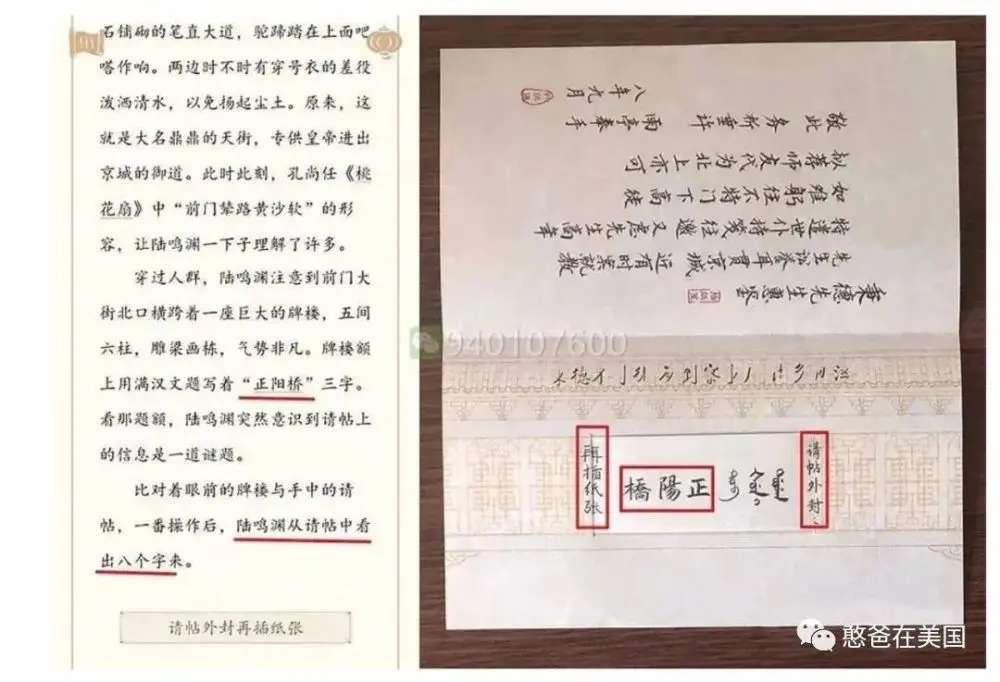 石铺砌的笔直大道，驼蹄踏在上面吧
嗒作响。两边时不时有穿号衣的差役
泼洒清水，以免扬起尘土。原来，这
就是大名鼎鼎的天街，专供皇帝进出
京城的御道。此时此刻，孔尚任《桃
花扇》中“前门辇路黄沙软”的形
容，让陆鸣渊一下子理解了许多。
穿过人群，陆鸣渊注意到前门大
街北口横跨着一座巨大的牌楼，五间
六柱，雕梁画栋，气势非凡。牌楼额
上用满汉文题写着“正阳桥”三字。
看那题额，陆鸣渊突然意识到请帖上
的信息是一道谜题。
比对着眼前的牌楼与手中的请
帖，一番操作后，陆鸣渊从请帖中看
出八个字来。
请帖外封再插纸张
秉德先生惠鉴
先生讼誉耳贯京城 近有时案就教
特遣世仆持笺往邀 又虑先生高年
如难躬往 不特门下高徒
拟荐师友代为北上亦可
敬此 务祈垂许 雨亭奉手
八年九月
请帖外封
正陽橋
再插纸张
940107600
憨爸在美国